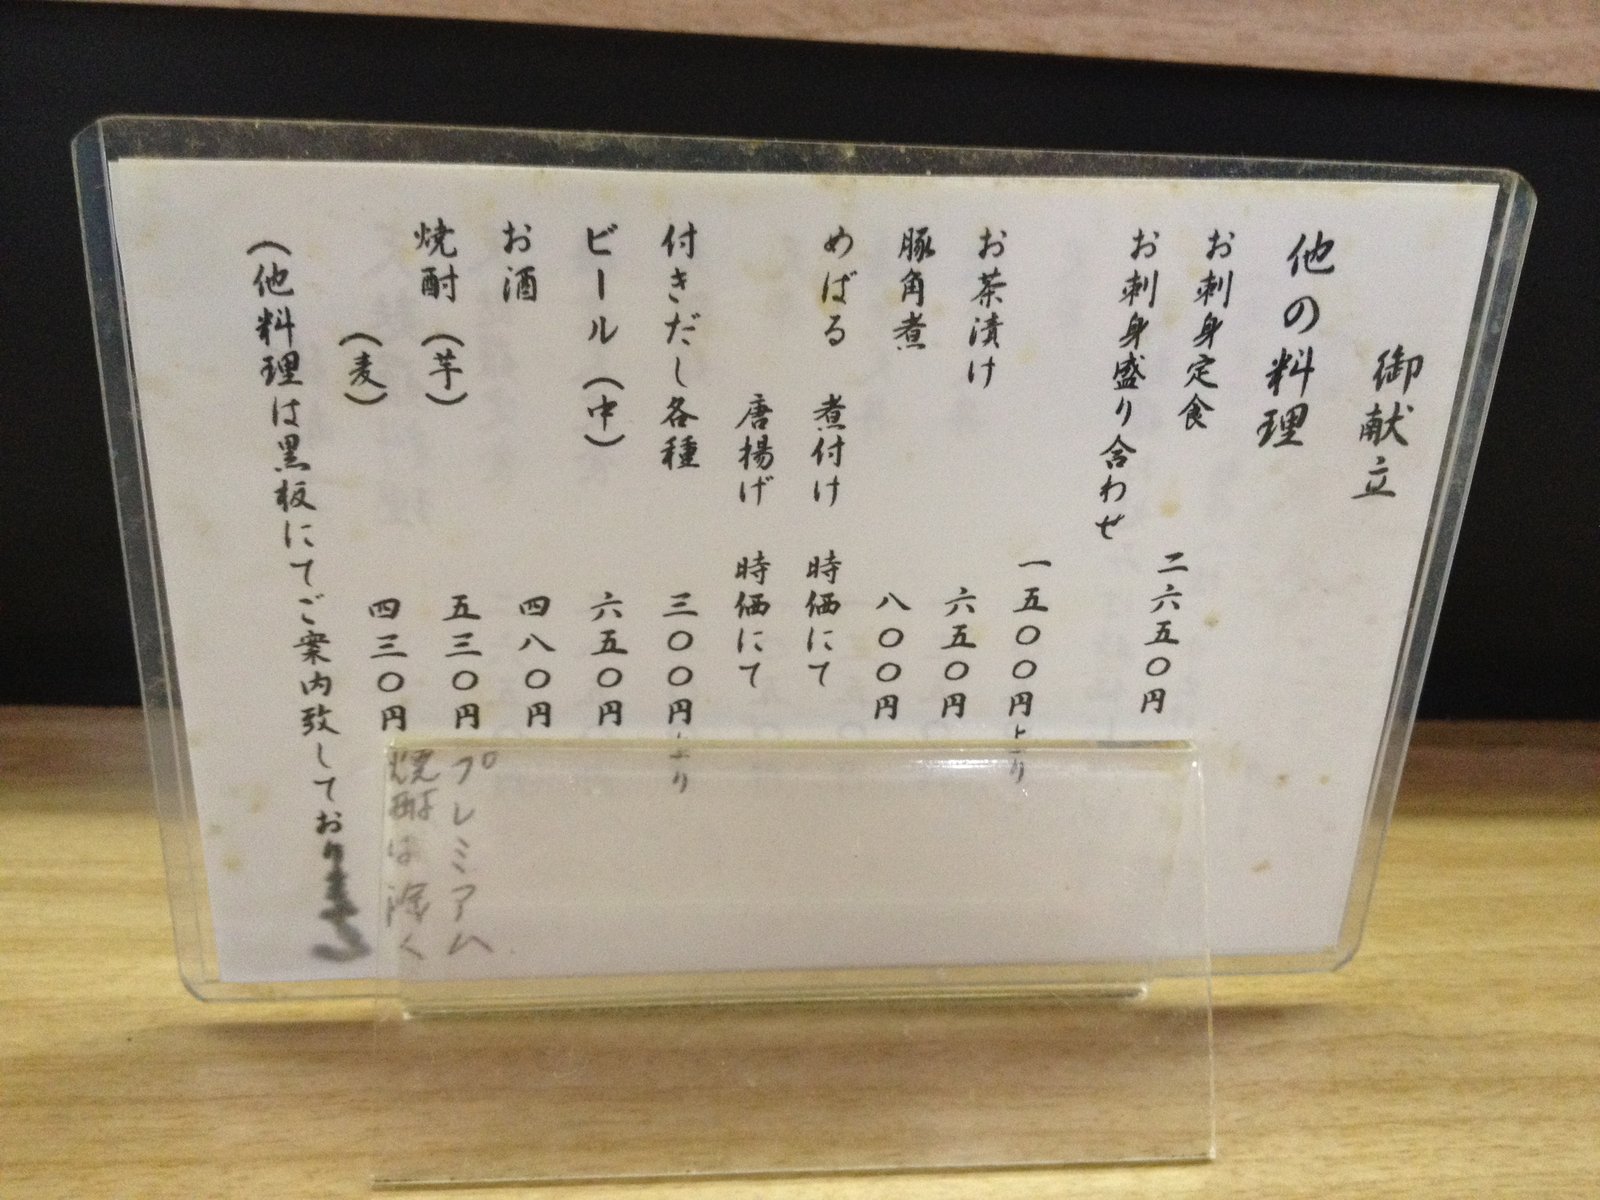 御献立
他の料理
お刺身定食 二六五〇円
お刺身盛り合わせ 一五〇〇円より
お茶漬け 六五〇円
豚角煮 八〇〇円
めばる 煮付け 時価にて
唐揚げ 時価にて
付きだし各種 三〇〇円より
ビール(中) 六五〇円
お酒 四八〇円
焼酎(芋) 五三〇円
(麦) 四三〇円
プレミアム
焼酎は除く
(他料理は黒板にてご案内致しており